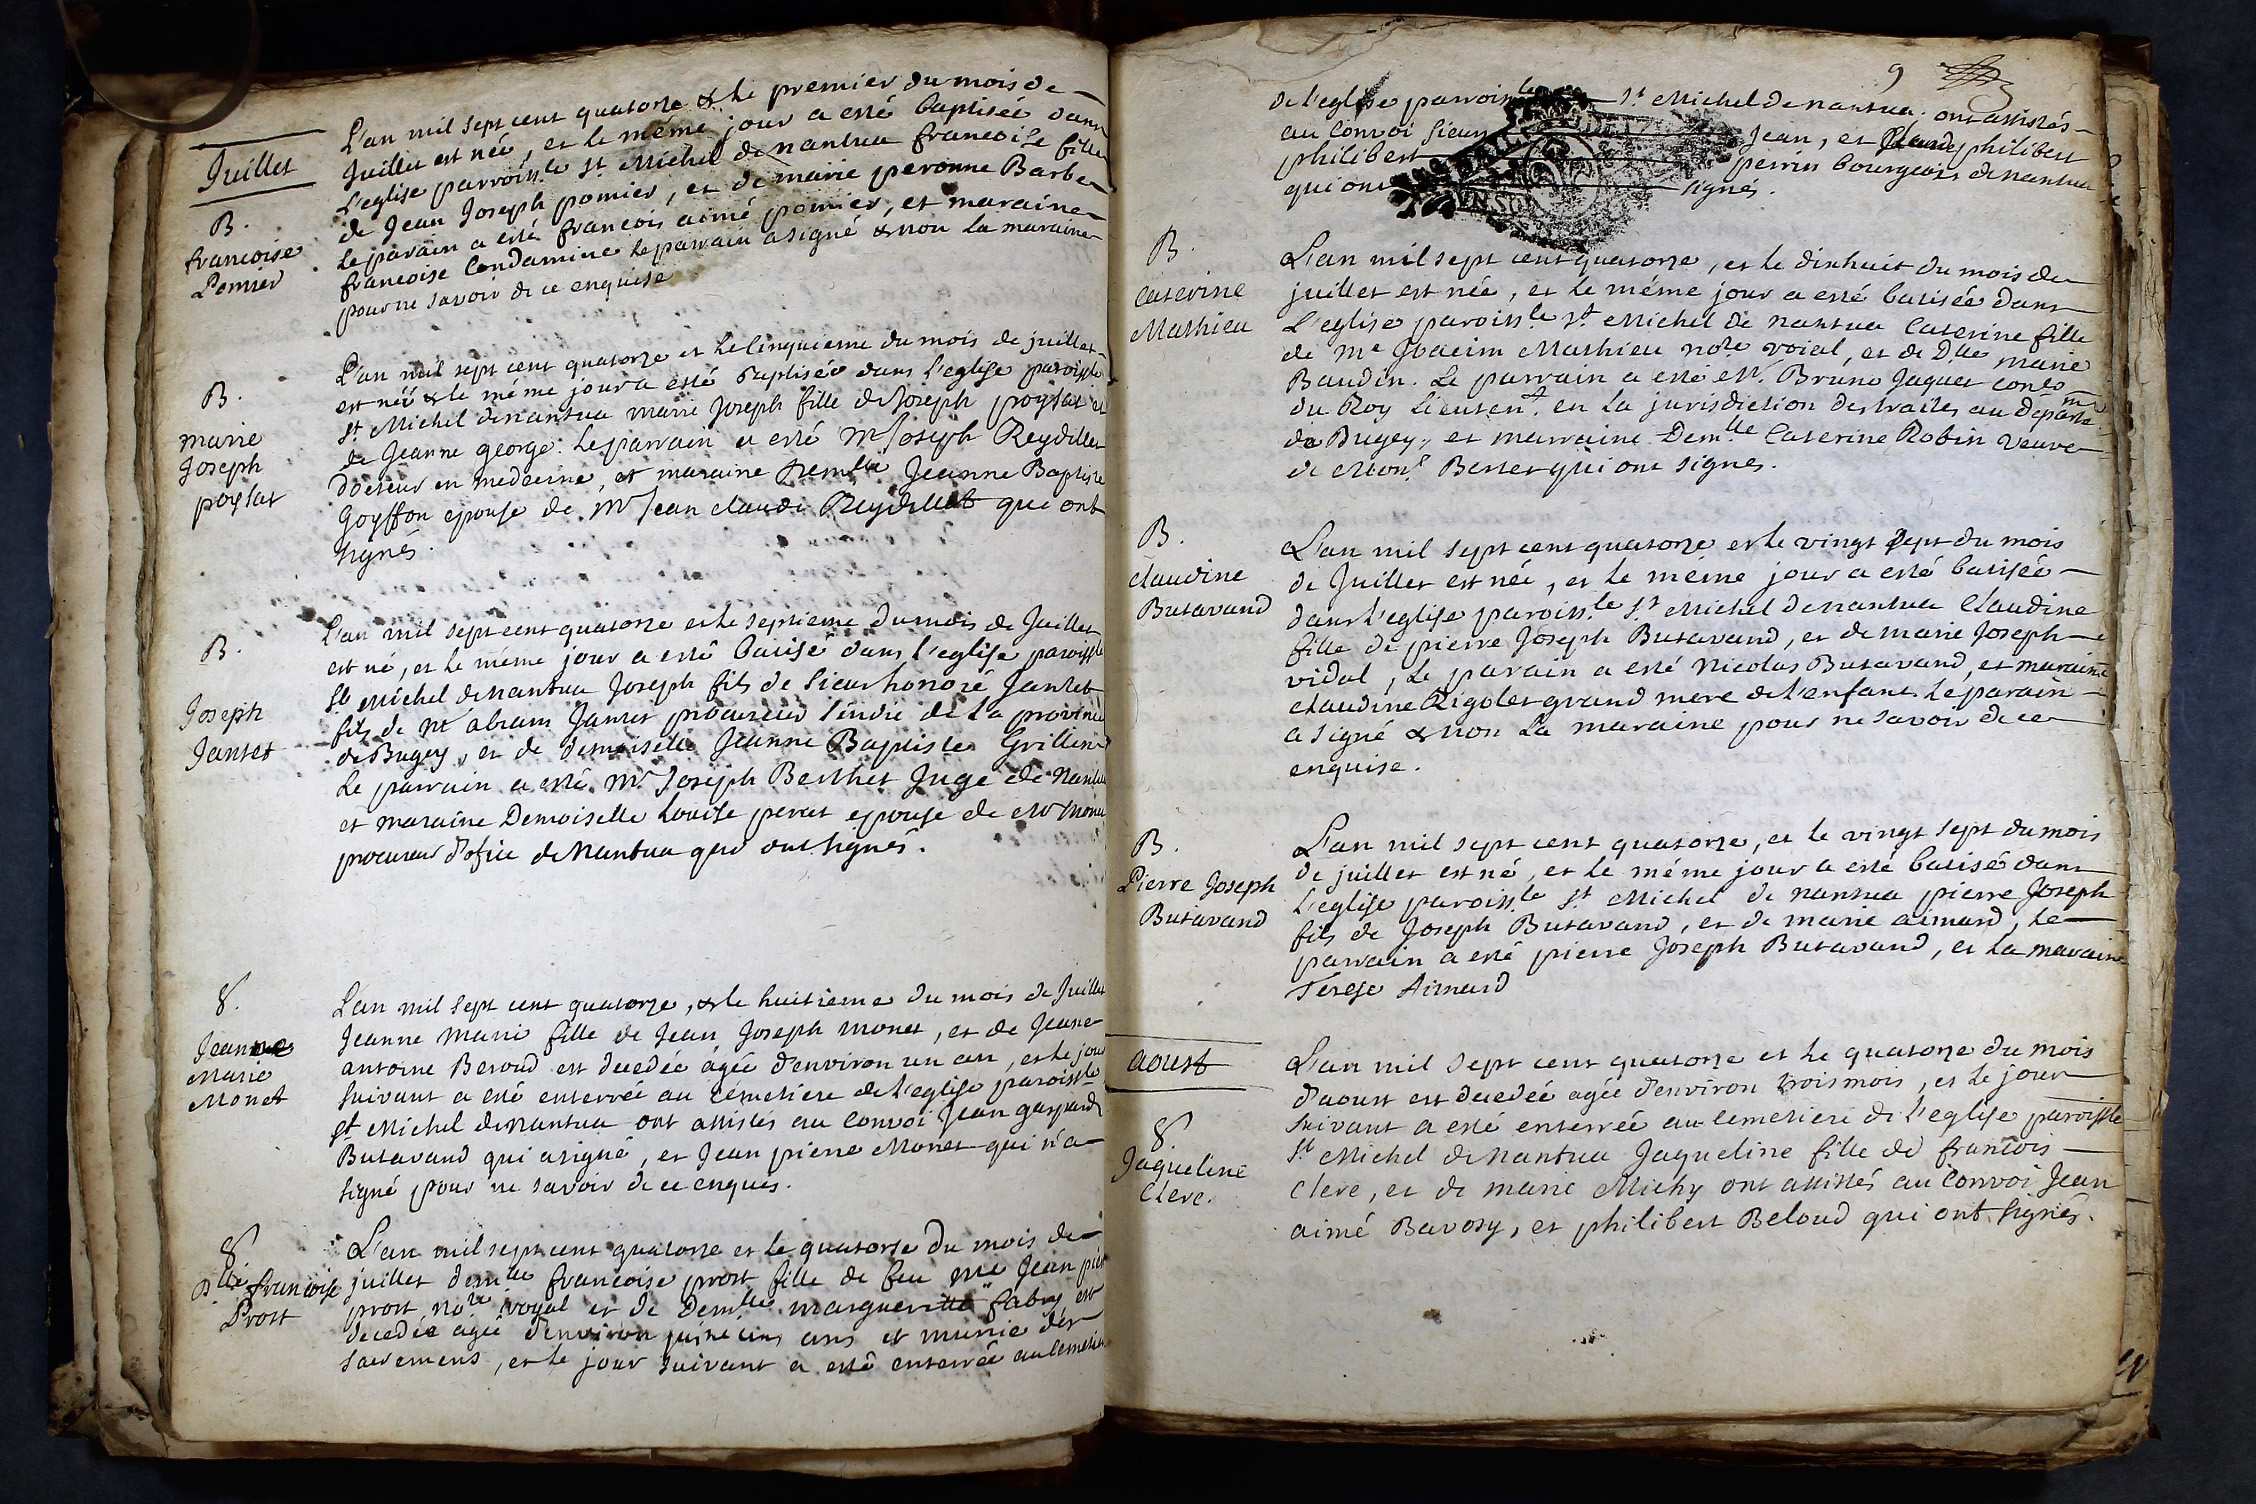 Juillet
L'an mil sept cent quatorze & le premier du mois de
Juillet est née, et le méme jour a esté baptisée dans
l'eglise parroiss.le St Michel de nantua francoise fille
de Jean Joseph pomier, et de marie peronne Barbe
le parain a esté francois aimé pomier, et maraine
francoise Condamine le parrain a signé & non la maraine
pour ne savoir de ce enquise
B.
francoise
Pomier
L'an mil sept cent quatorze et le Cinquieme du mois de juillet
est née & le méme jour a esté baptisée dans l'eglise paroissle
St Michel de nantua marie Joseph fille de Joseph poysat et
de Jeanne george. Le parrain a esté Mr Joseph Reydellet
docteur en medecine, et maraine Demlle Jeanne Baptiste
Goyffon epouse de Mr Jean claude Reydellet qui ont
signés.
B.
marie
Joseph
poysat
L'an mil sept cent quatorze et le septieme du mois de Juillet
est né, et le méme jour a esté batisé dans l'eglise paroissle
St Michel de nantua Joseph fils de Sieur honoré Jantet
fils de Mr abram Jantet procureur sindic de la province
de Bugey, et de demoiselle Jeanne Baptiste Grillon
Le parrain a esté Mr Joseph Berthet Juge de Nantua
et maraine Demoiselle Louise perat epouse de Mr Monet
procureur d'ofice de Nantua qui ont signés.
B.
Joseph
Jantet
L'an mil sept cent quatorze, & le huitieme du mois de Juillet
Jeanne Marie fille de Jean Joseph Monet, et de Jeane
antoine Beroud est decedée agée d'environ un an, et le jour
suivant a esté enterrée au cémetiere de l'eglise paroissle
St Michel de nantua ont assistés au Convoi Jean gaspard
Butavand qui a signé, et Jean pierre Monet qui n'a
signé pour ne savoir de ce enquis.
8.
Jeanne
Marie
Monet
L'an mil sept cent quatorze et le quatorze du mois de
juillet demlle francoise prost fille de feu Me Jean
prost nore royal et de Demlle marguerite fabry est
decedée agée d'environ ans et munie des
sacremens, et le jour suivant a esté enterrée au Cemetiere
8
Dlle francoise
Prost
9
de l'eglise parroissle St Michel de nantua. ont assistés
au Convoi Jean, et Claude philibert
philibert perrin bourgeois de nantua
qui ont signés.
B.
Caterine
Mathieu
L'an mil sept cent quatorze, et le dixhuit du mois de
juillet est née, et le méme jour a esté batisée dans
l'eglise paroissle St Michel de nantua Caterine fille
de Me Joacim Mathieu nore roial, et de Dlle marie
Baudin. Le parrain a esté Mr. Bruno Jaquet
du Roy Lieutent. en la jurisdiction des traites au departemt
de Bugey, et marraine Demlle Caterine Robin veuve
de Monsr Berter qui ont signés.
B.
claudine
Butavand
L'an mil sept cent quatorze et le vingt sept du mois
de Juillet est née, et le méme jour a esté batisée
dans l'eglise paroissle St Michel de nantua Claudine
fille de pierre Joseph Butavand, et de marie Joseph
vidal, Le parain a esté Nicolas Butavand, et maraine
claudine Rigolet grand mere de l'enfant. le parain
a signé & non la maraine pour ne savoir de ce
enquise.
B.
Pierre Joseph
Butavand
L'an mil sept cent quatorze, et le vingt sept du mois
de juillet est né, et le méme jour a esté batisé dans
l'eglise paroissle St Michel de nantua pierre Joseph
fils de Joseph Butavand, et de marie aimard, Le
parrain a esté pierre Joseph Butavand, et la maraine
Terese Aimard
aoust
8.
Jaqueline
Clere.
L'an mil sept cent quatorze et le quatorze du mois
d'aoust est decedée agée d'environ trois mois, et le jour
suivant a esté enterrée au Cemetiere de l'eglise paroissle
St Michel de Nantua Jaqueline fille de francois
Clere, et de marie Michy ont assistés au Convoi Jean
aimé Bavosy, et philibert Beloud qui ont signés.